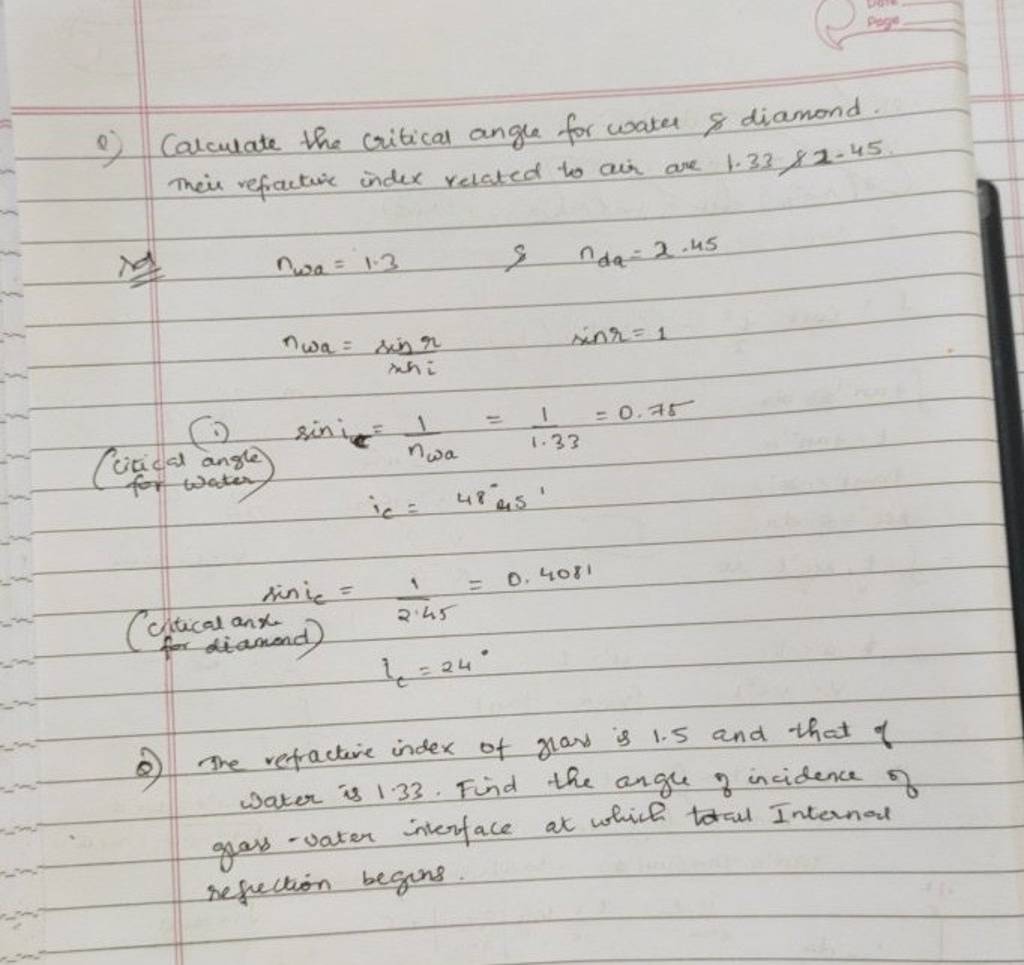 Date
Page
Q) Calculate the critical angle for water & diamond.
Their refractive index related to air are 1.33 & 2.45.
nwa = 1.3 & nda = 2.45
nwa = sin r / sin i sin r = 1
(i) sin ic = 1/nwa = 1/1.33 = 0.75
(Citical angle
for water)
ic = 48° 45'
sin ic = 1/2.45 = 0.4081
(critical
for diamond)
ic = 24°
Q) The refractive index of glass is 1.5 and that of
water is 1.33. Find the angle of incidence of
glass-water interface at which total Internal
reflection begins.